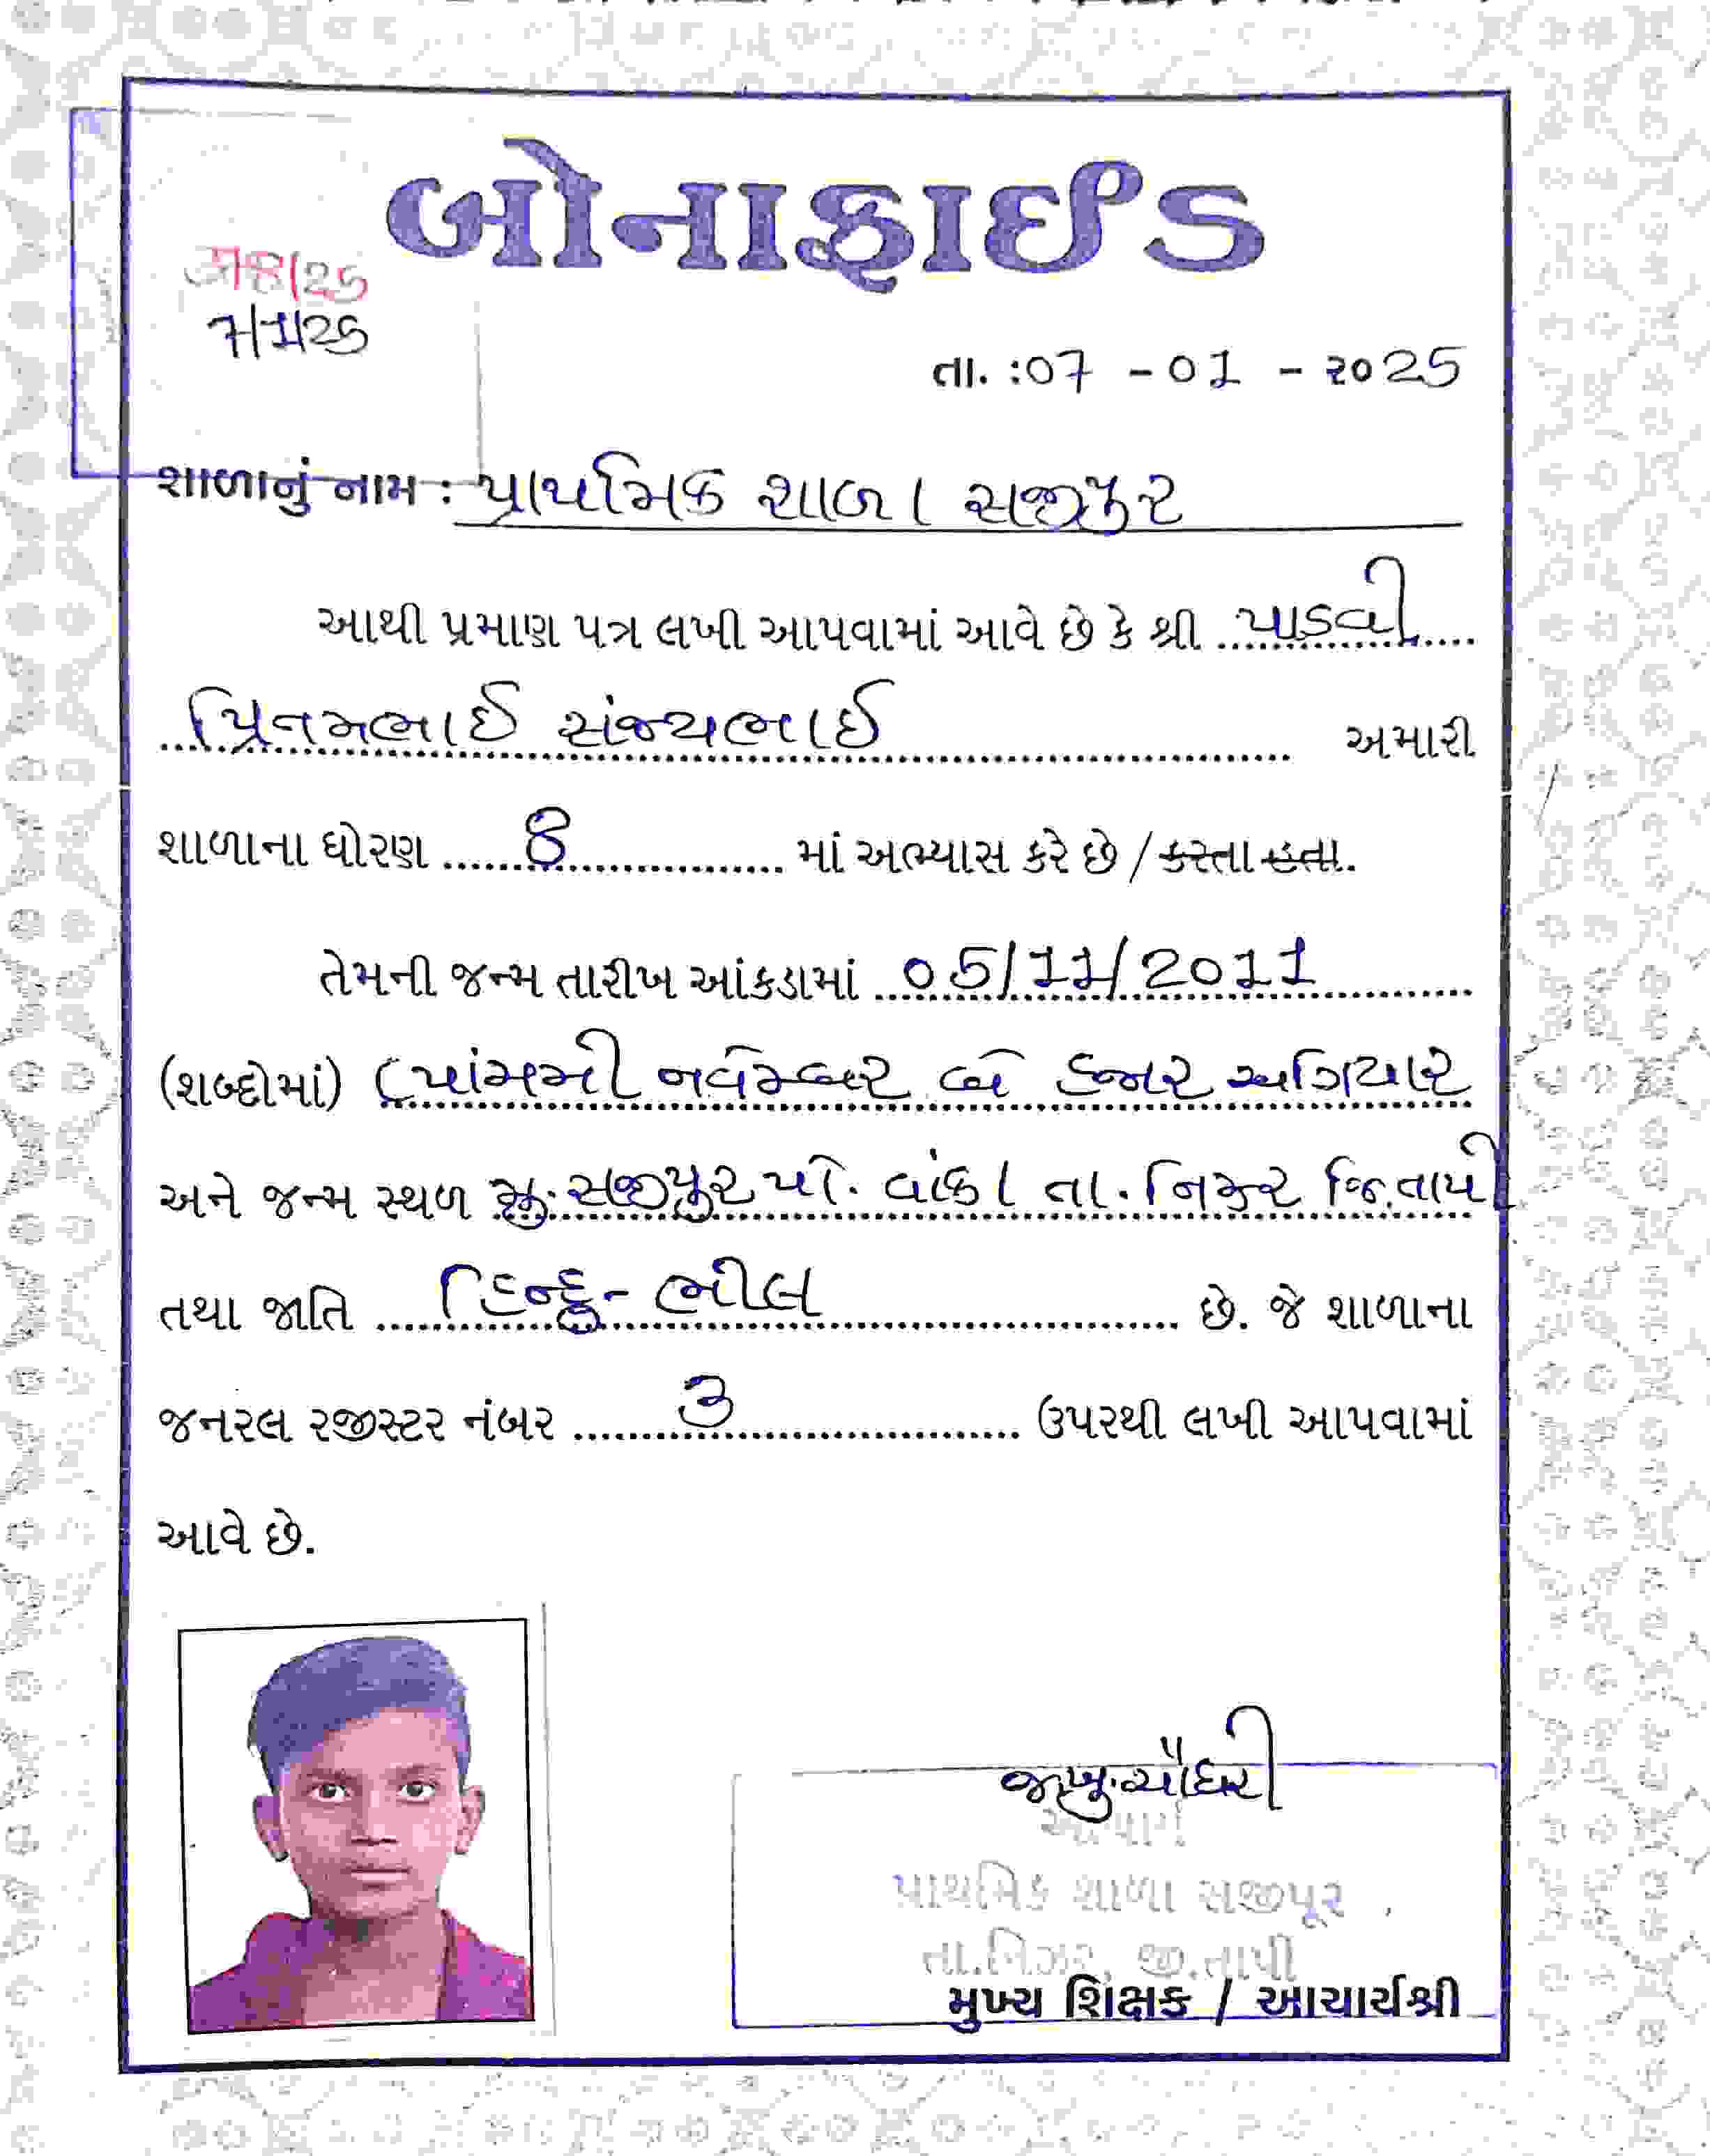 બોનાફાઈડ
7/1/25
તા. :07 - 01 - ૨૦25
શાળાનું નામ : પ્રાથમિક શાળા સજીપુર
આથી પ્રમાણ પત્ર લખી આપવામાં આવે છે કે શ્રી પાડવી
પ્રિનમભાઈ સંજયભાઈ અમારી
શાળાના ધોરણ 8 માં અભ્યાસ કરે છે / કરતા હતા.
તેમની જન્મ તારીખ આંકડામાં 05/11/2011
(શબ્દોમાં) (પાંચમી નવેમ્બર બે હજાર અગિયાર
અને જન્મ સ્થળ મુ. સજીપુર પો. વાંકા તા. નિઝર જિ.તાપી
તથા જાતિ હિન્દુ - ભીલ છે. જે શાળાના
જનરલ રજીસ્ટર નંબર 3 ઉપરથી લખી આપવામાં
આવે છે.
ચૌધરી
આચાર્ય
પ્રાથમિક શાળા સજીપૂર
તા.નિઝર, જી.તાપી
મુખ્ય શિક્ષક / આચાર્યશ્રી